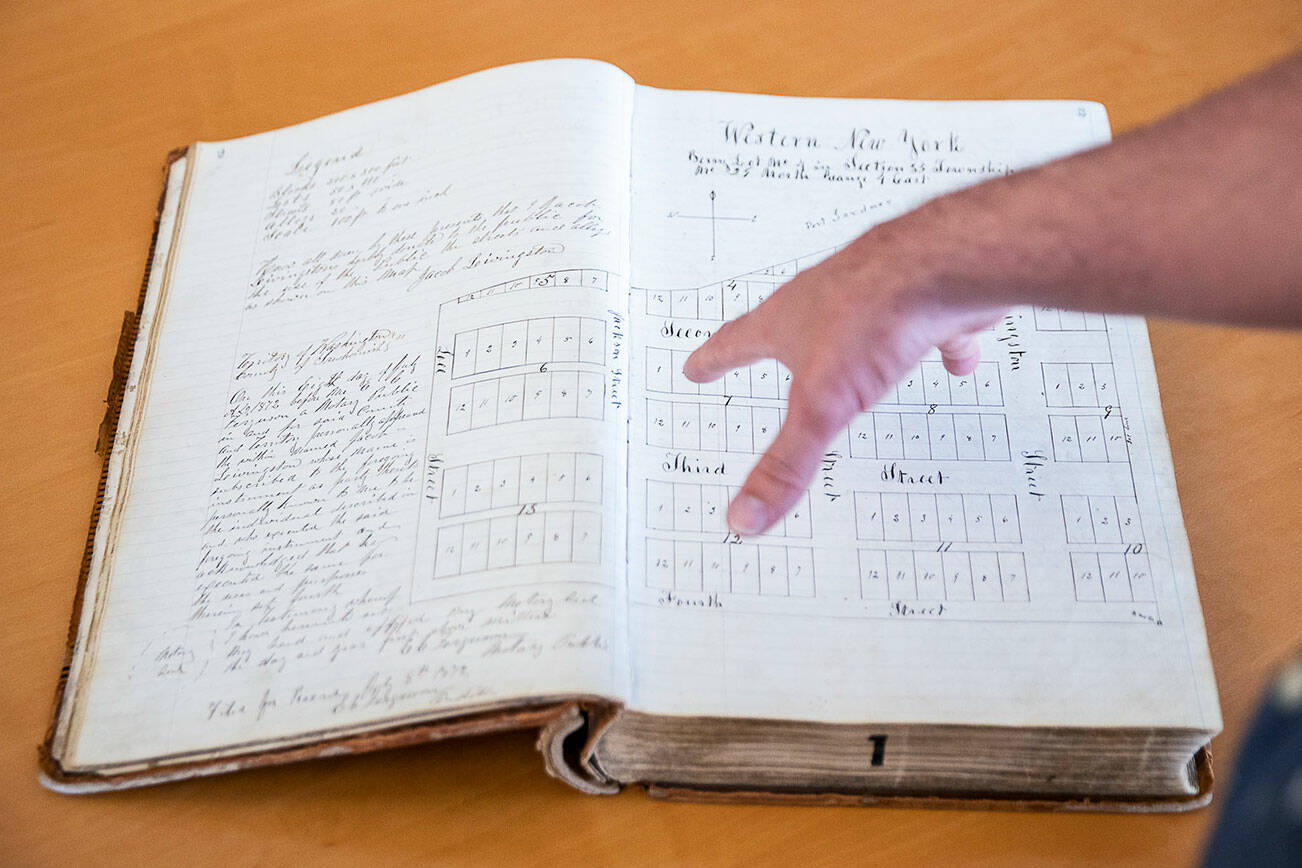 Legend
Blocks 200 x 200 feet
Lots
Streets 80 ft wide
Alleys 20
Scale 100 ft to one inch
Know all men by these presents that I Jacob
Livingston hereby donate to the public for
the use of the Public the streets and alleys
as shown on this Map Jacob Livingston
Territory of Washington
County of Snohomish
On this Eight day of July
A.D. 1872 before me E. C.
Ferguson a Notary Public
in and for said County
and Territory personally appeared
the within named Jacob
Livingston whose name is
subscribed to the foregoing
instrument as party thereto
personally known to me to be
the individual described in
and who executed the said
foregoing instrument and
acknowledged that he
executed the same for
the uses and purposes
therein set forth
In testimony whereof
I have hereunto set
my hand and affixed my Notary Seal
the day and year first above written
E C Ferguson
Notary Public
Notary
Seal
Filed for Record July 8th 1872
E C Ferguson
Western New York
Being Lot No 4 in Section 35 Township
No 29 North Range 4 East
Port Gardner
12 11 10 9 8 7
5
12 11 10 9
4
Jackson Street
Lee
Street
1 2 3 4 5 6
6
12 11 10 9 8 7
1 2 3 4 5 6
13
12 11 10 9 8 7
Second
1 4 5
7
12 11 10 9 8
8
12 11 10 9 8 7
1 2 3
9
12 11 10
Third
Street
Street
Street
1 2 3
12
12 11 10 9 8 7
1 2 3 4 5 6
11
12 11 10 9 8 7
1 2 3
10
12 11 10
Fourth
Street
1